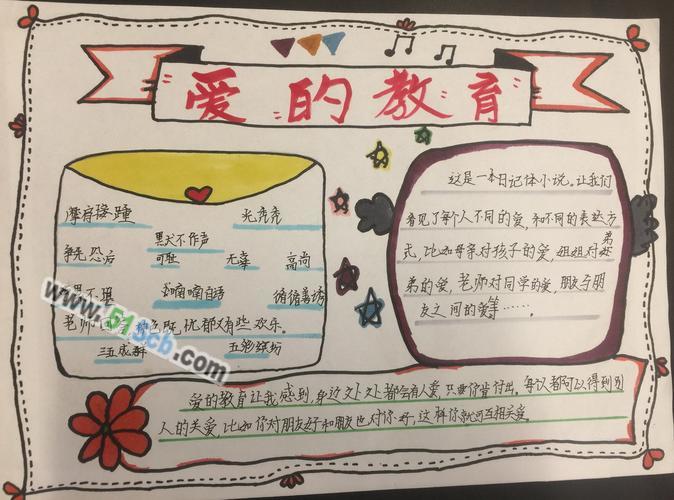 爱的教育
摩肩接踵 光秃秃
默不作声
争先恐后 可耻 无辜 高尚
喃喃自语 循循善诱
老师 色既忧郁又有些欢乐。
三五成群 五彩缤纷
这是一本日记体小说。让我们
看见了每个人不同的爱,和不同的表达方
式,比如母亲对孩子的爱,姐姐对弟
弟的爱,老师对同学的爱,朋友与朋
友之间的爱等……
爱的教育让我感到,身边处处都会有人爱,只要你肯付出。每人都可以得到别
人的关爱,比如你对朋友好和朋友也对你好,这样你就可互相关爱。
www.51scb.com